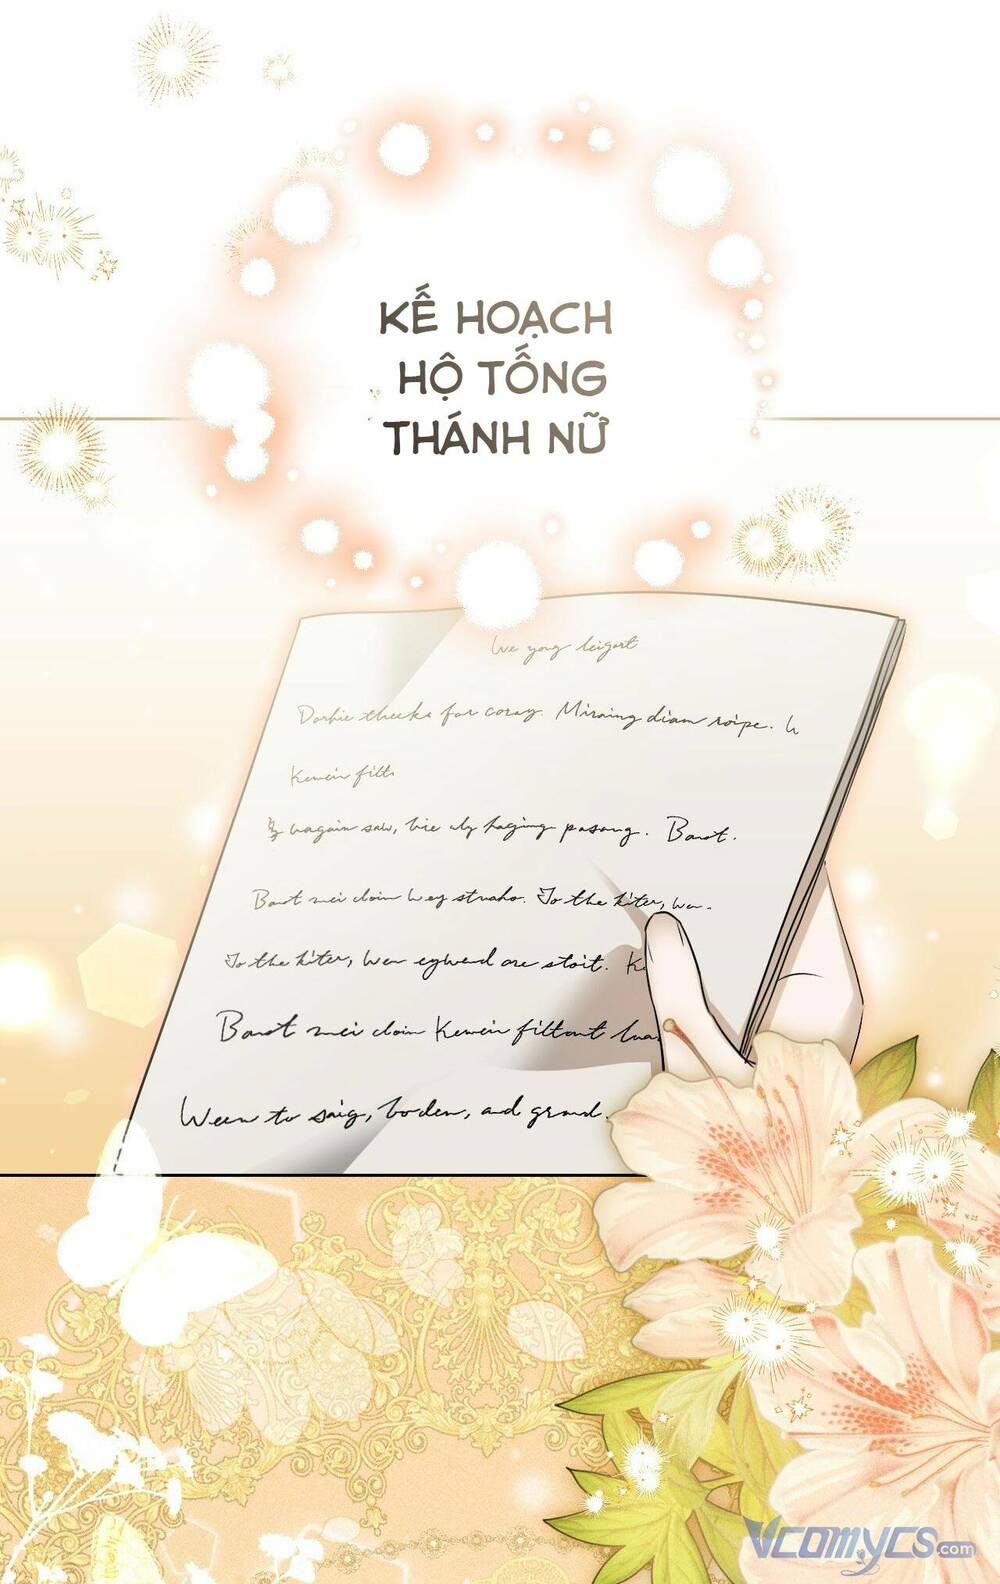 KẾ HOẠCH
HỘ TỐNG
THÁNH NỮ
We yong leigart
Dorhie theeks for coray. Miraing diam roipe. W
Kewein filt
wagain saw, bie uly haging pasong. Barot.
Barot mei cloin Wey struaho. To the kiter, we
To the kiter, Wen eyWend are stoit. K
Barot mei cloin Kewein filtont lua
Ween to saig, boden, and grand.
VCOMYCS.com